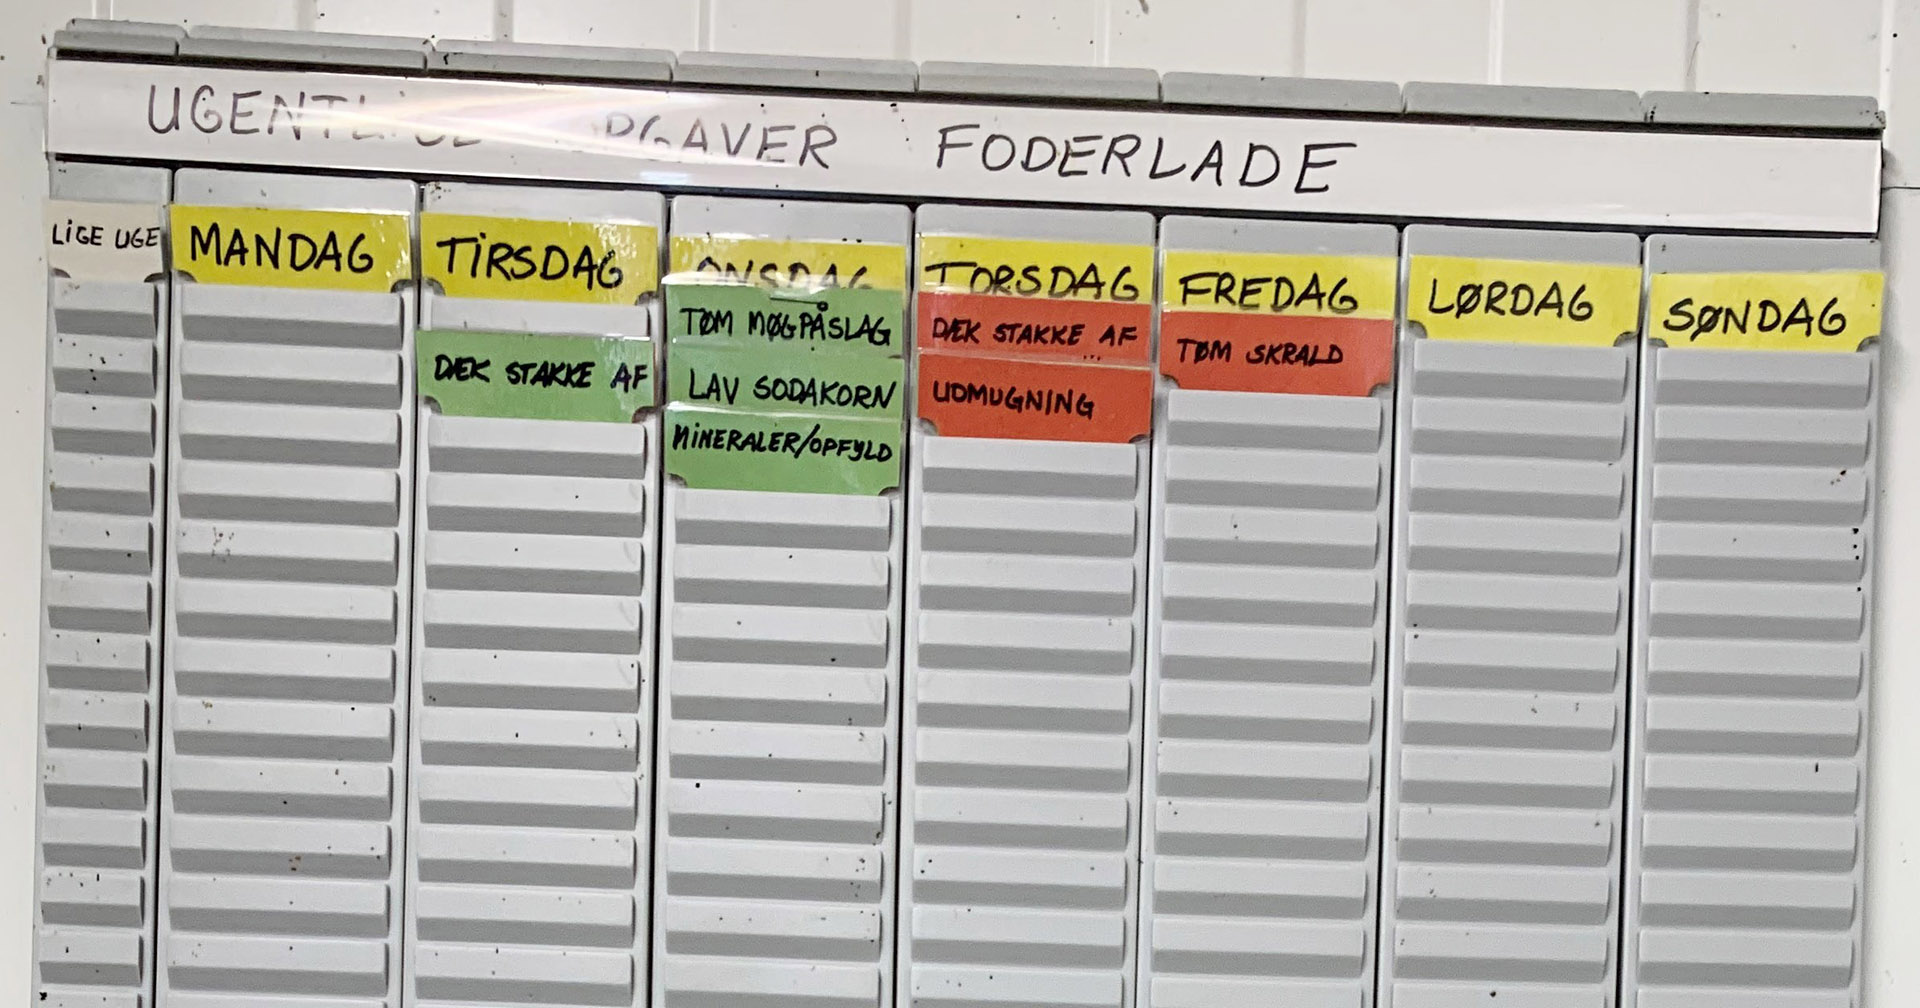 UGENTLIGE OPGAVER FODERLADE
LIGE UGE
MANDAG
TIRSDAG
DÆK STAKKE AF
ONSDAG
TØM MØGPÅSLAG
LAV SODAKORN
MINERALER/OPFYLD
TORSDAG
DÆK STAKKE AF
UDMUGNING
FREDAG
TØM SKRALD
LØRDAG
SØNDAG